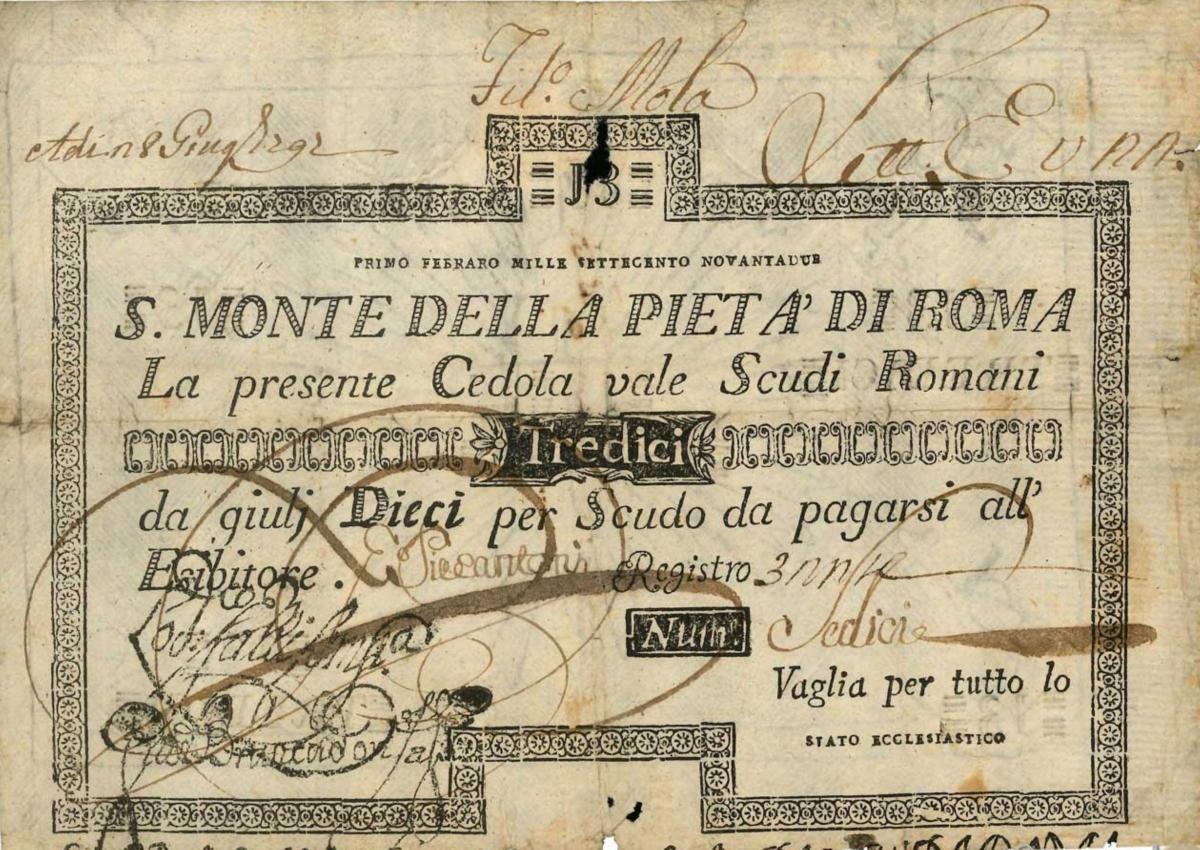 Fil.o Mola
Adi 18 Giug 1792
Lett. E
13
PRIMO FEBRARO MILLE SETTECENTO NOVANTADUE
S. MONTE DELLA PIETA' DI ROMA
La presente Cedola vale Scudi Romani
Tredici
da giulj Dieci per Scudo da pagarsi all'
Esibitore. Registro
Num. Sedici
Vaglia per tutto lo
STATO ECCLESIASTICO